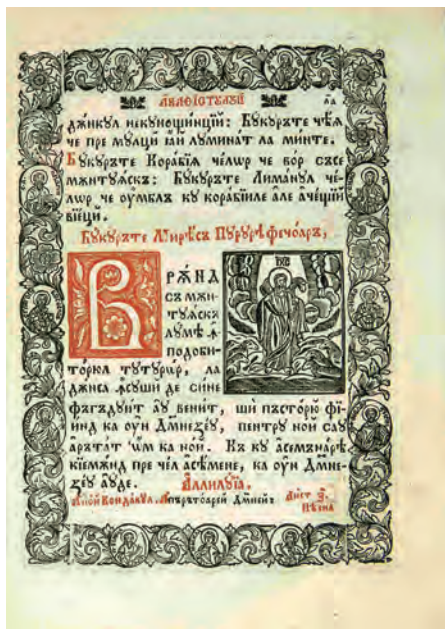 АКАѲІСТꙊЛꙊЙ
джнкꙋл некꙋношинцїй: Бꙋкꙋрѣте чѣѧ
че пре мꙋлци ꙗй лꙋминат ла минте.
Бꙋкꙋрѣте Корабїѧ челѡр че вор съсе
мѫнтꙋѧскъ: Бꙋкꙋрѣте Лиманꙋл че-
лѡр че оумблъ кꙋ корабїиле але ачещїй
вїеци.
Бꙋкꙋрѣте Мирѣсъ Пꙋрꙋрѣ фечоаръ,
В
РѪНД
съ мѫн-
тꙋѧскъ
лꙋмѣ ꙟ-
подоби-
торюл тꙋтꙋрѡр, ла
джнса ꙟсꙋши де сине
фъгъдꙋит аꙋ венит, ши пъсторю фі-
инд ка оун Дмнеꙁеꙋ, пентрꙋ ной саꙋ
арътат ѡм ка ной. Къ кꙋ асемънарѣ
кїемѫнд пре чел асѣмене, ка оун Дмне-
ꙁеꙋ аꙋде. Аллилꙋїа.
Апой Кондакꙋл. Апърътоарей Дмней
Пѣсна